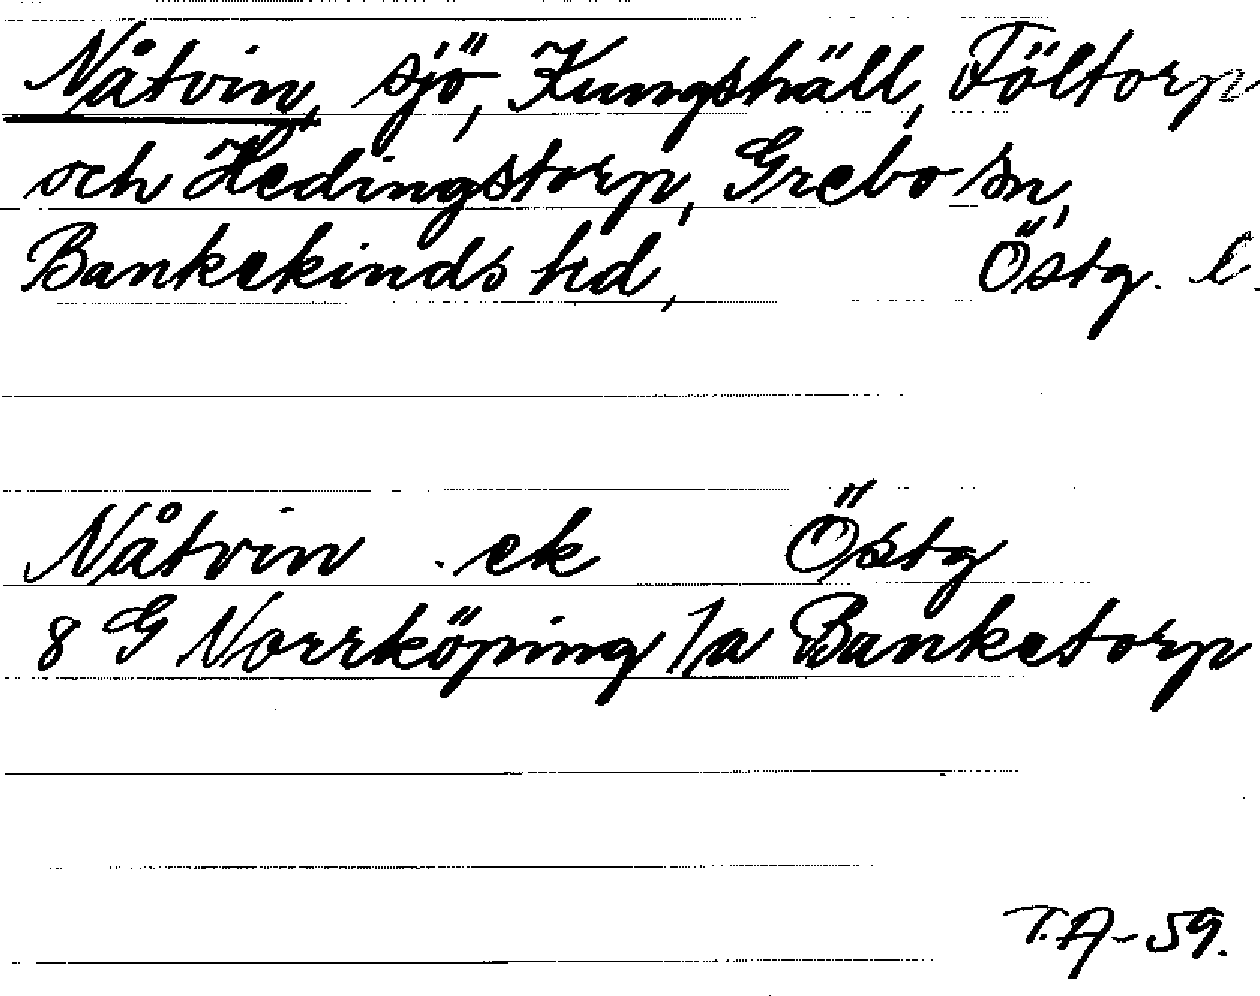 Nåtvin, sjö, Kungshäll, Föltorp
och Hedingstorp, Grebo sn,
Bankekinds hd, Östg. l.
Nåtvin . ek Östg
8 G Norrköping 1a Banketorp
T.A-59.